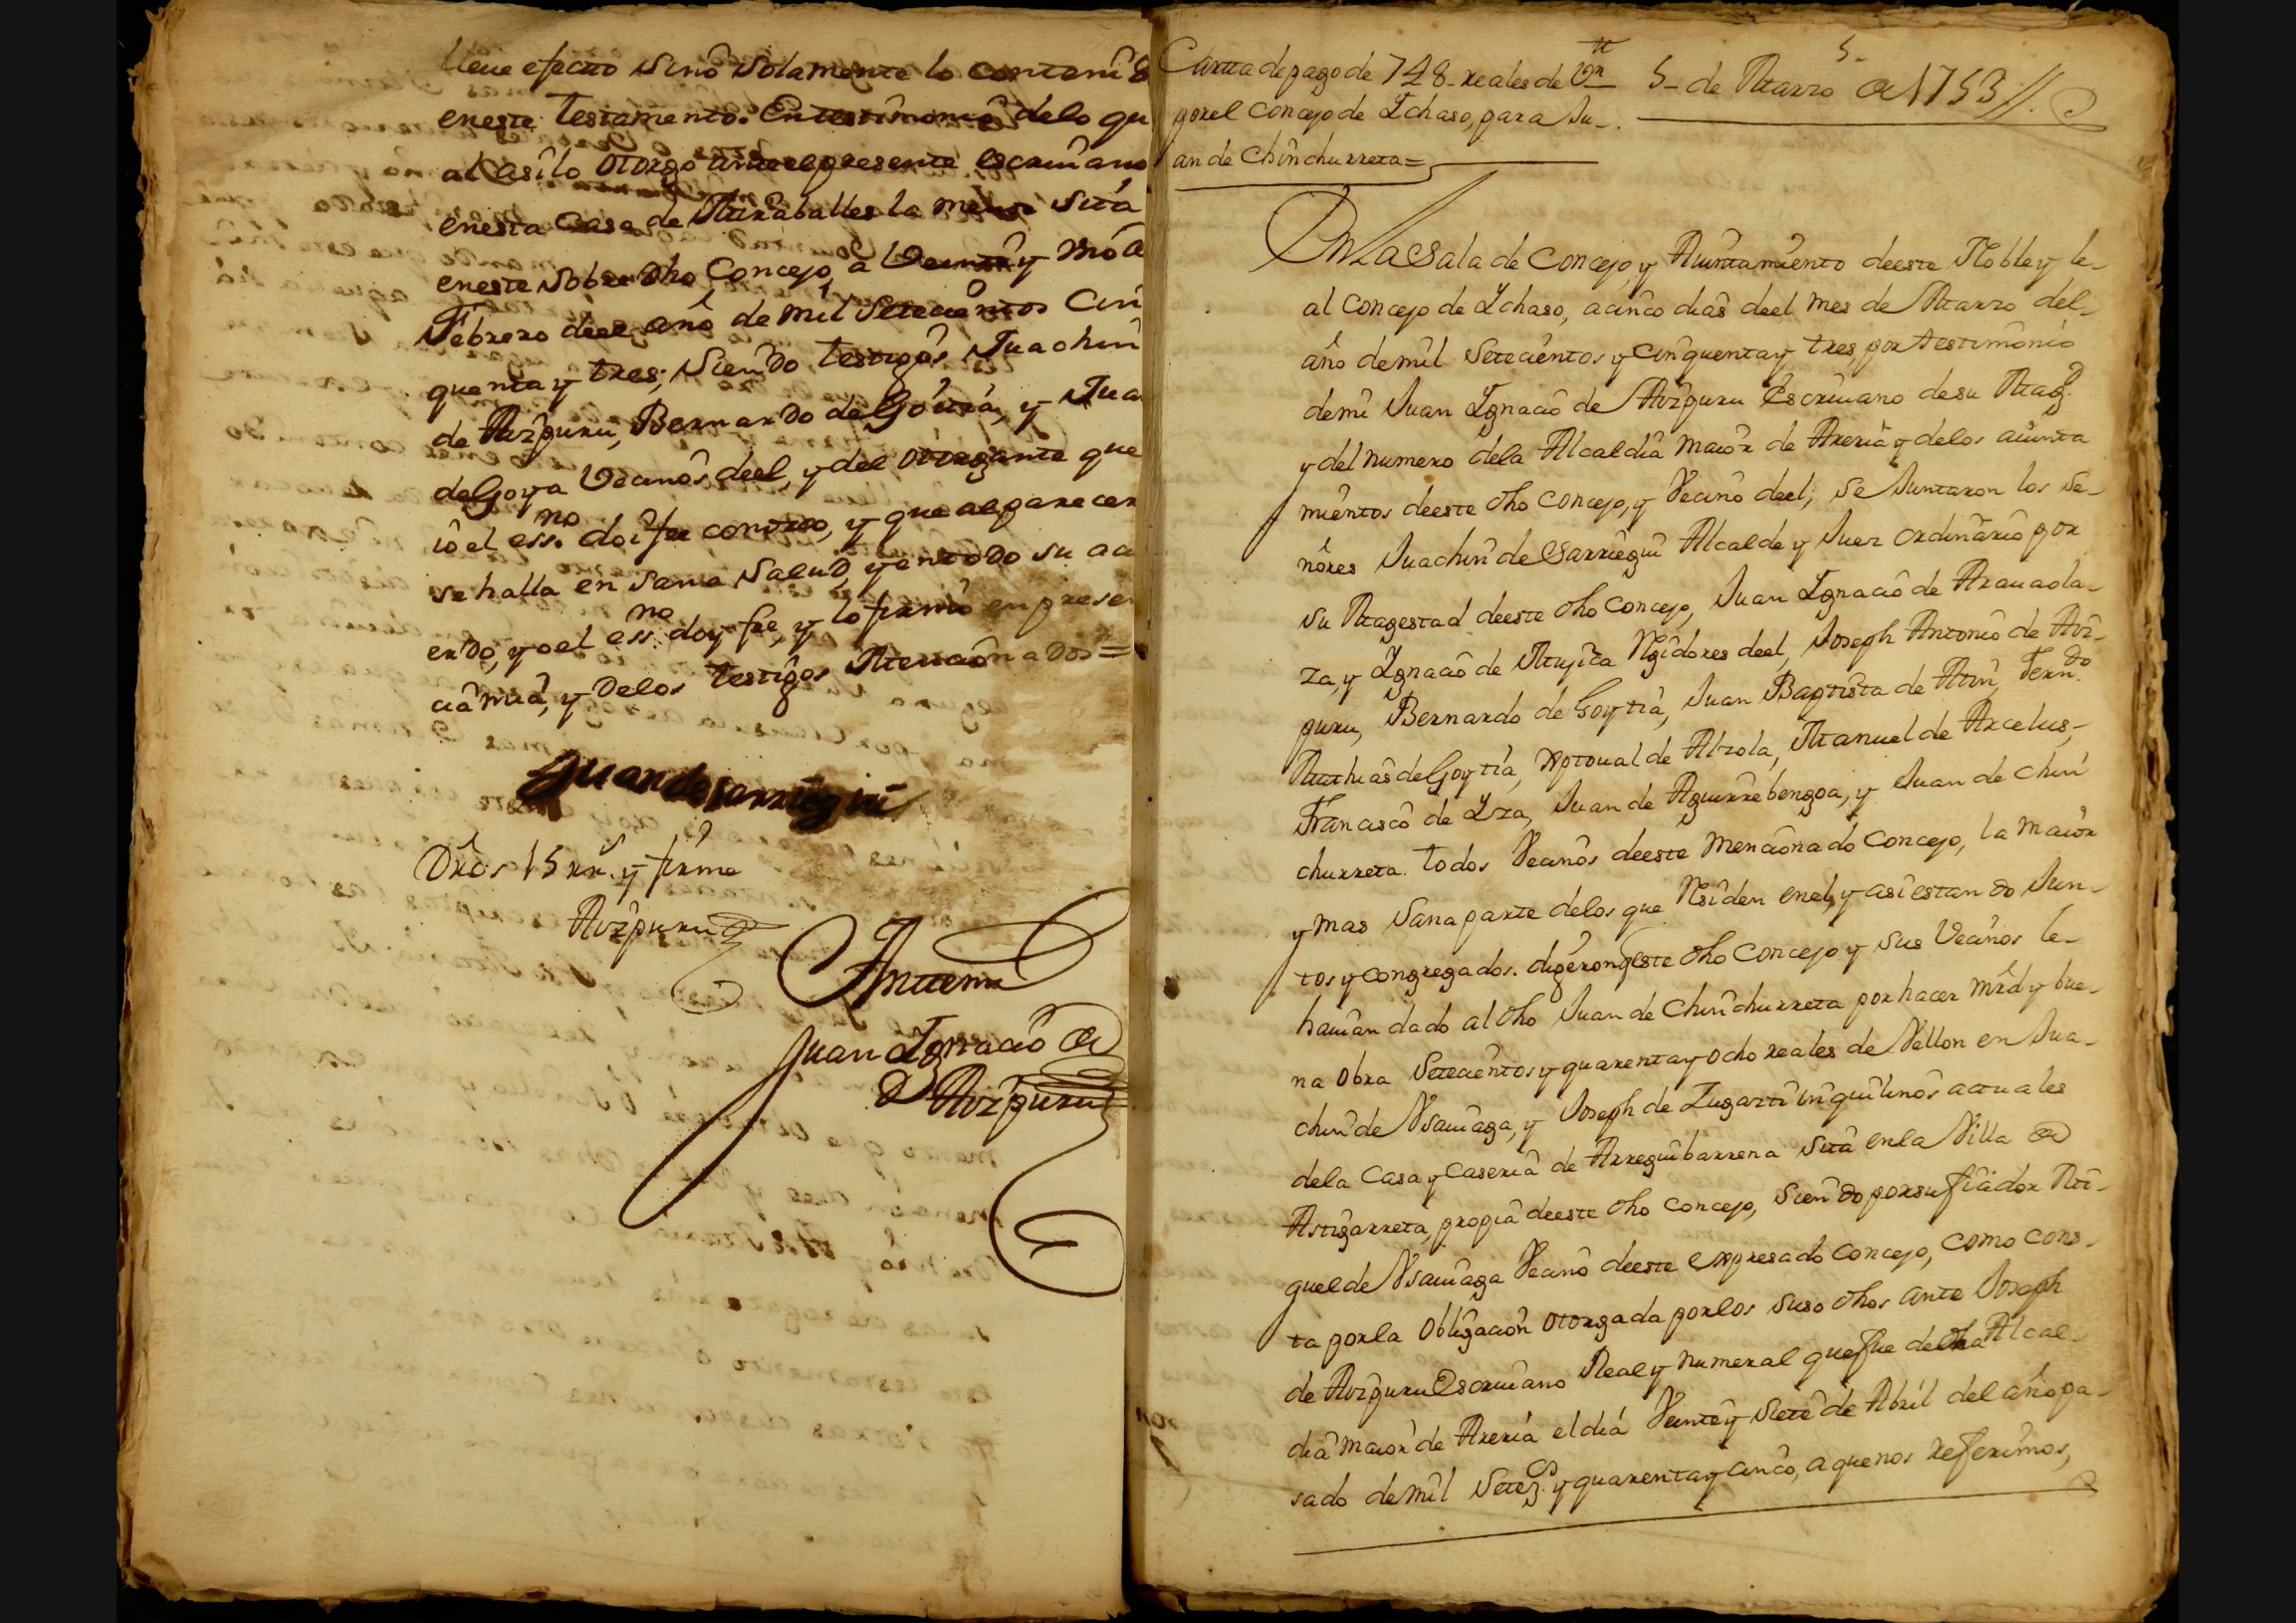 lleue efecto sino solamente lo conteni
eneste testamento. En testimonio delo qu
al asilo otorgo anteelpresente escriuano
enesta casa de Miraballes la menor sita
eneste sobre dho Concejo, a Veinte y
Febrero deel año de mil Setecientos Cin
quenta y tres; siendo testigos Juachin
de Aizpuru, Bernardo de Goitia, y Jua
de Goya Vecinos deel, y del otorgante que
io el essno. doi fee conozco, y que al parecer
se halla en sana Salud, y entodo su acu
erdo, yo el essno: doy fee, y lo firmo en presen
cia mia, y delos testigos Mencionados =
Juan de sarriegui
Dros 15 rrs. y firme
Aizpuru
Antemi
Juan Ignacio de
Aizpuru
Carta de pago de 748 reales de Vn
por el concejo de Ichaso, para Ju-
an de Chinchurreta =
5
5- de Marzo de 1753 //.
En La Sala de Concejo, y Aiuntamiento deeste Noble y le-
al concejo de Ichaso, a cinco dias deel mes de Marzo del-
año de mil setecientos y cinquenta y tres, por testimonio
demi Juan Ignacio de Aizpuru Escriuano de su Magd.
y del numero dela Alcaldia maior de Areria y delos aiunta
mientos deeste dho concejo, y Vecino deel; se Juntaron los se-
ñores Juachin de Sarriegui Alcalde y Juez ordinario por
su Magestad deeste dho concejo, Juan Ignacio de Arauaola-
za, y Ignacio de Mujica Regidores deel, Joseph Antonio de Aiz-
puru, Bernardo de Goytia, Juan Baptista de Atin, Ferndo.
Mathias de Goytia, Xptoual de Alzola, Manuel de Arcelus,
Francisco de Iza, Juan de Aguirrebengoa, y Juan de Chin
churreta. todos Vecinos deeste mencionado concejo, la maior
y mas sana parte delos que Residen enel, y asi estando Jun-
tos y congregados. digeron q este dho concejo y sus Vecinos le-
hauian dado al dho Juan de Chinchurreta por hacer mrd y bue-
na obra setecientos y quarenta y ocho reales de Vellon en Jua-
chin de Vsauiaga, y Joseph de Zugarti inquilinos actuales
dela casa y caseria de Arreguibarrena sita enla Villa de
Astigarreta, propia deeste dho concejo, siendo por su fiador Mi-
guel de Vsauiaga Vecino deeste expresado concejo, como cons-
ta por la obligacion otorgada por los suso dhos ante Joseph
de Aizpuru Escriuano Real y numeral que fue de dha Alcal-
dia maior de Areria el dia Veinte y siete de Abril del año pa-
sado de mil setezs. y quarenta y cinco, a que nos referimos,